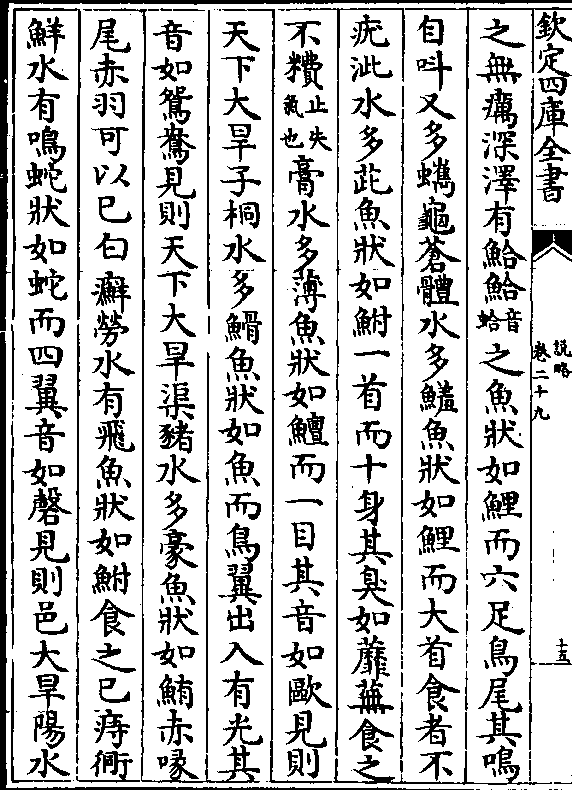 欽定四庫全書
說略
卷二十九
十五
之無癘深澤有鮯鮯音蛤之魚狀如鯉而六足鳥尾其鳴
自呌又多蠵龜蒼體水多鱃魚狀如鯉而大首食者不
疣泚水多茈魚狀如鮒一首而十身其臭如蘼蕪食之
不糟止失氣也膏水多薄魚狀如鱣而一目其音如歐見則
天下大旱子桐水多䱻魚狀如魚而鳥翼出入有光其
音如鴛鴦見則天下大旱渠豬水多豪魚狀如鮪赤喙
尾赤羽可以已白癬勞水有飛魚狀如鮒食之已痔衕
鮮水有鳴蛇狀如蛇而四翼音如磬見則邑大旱陽水